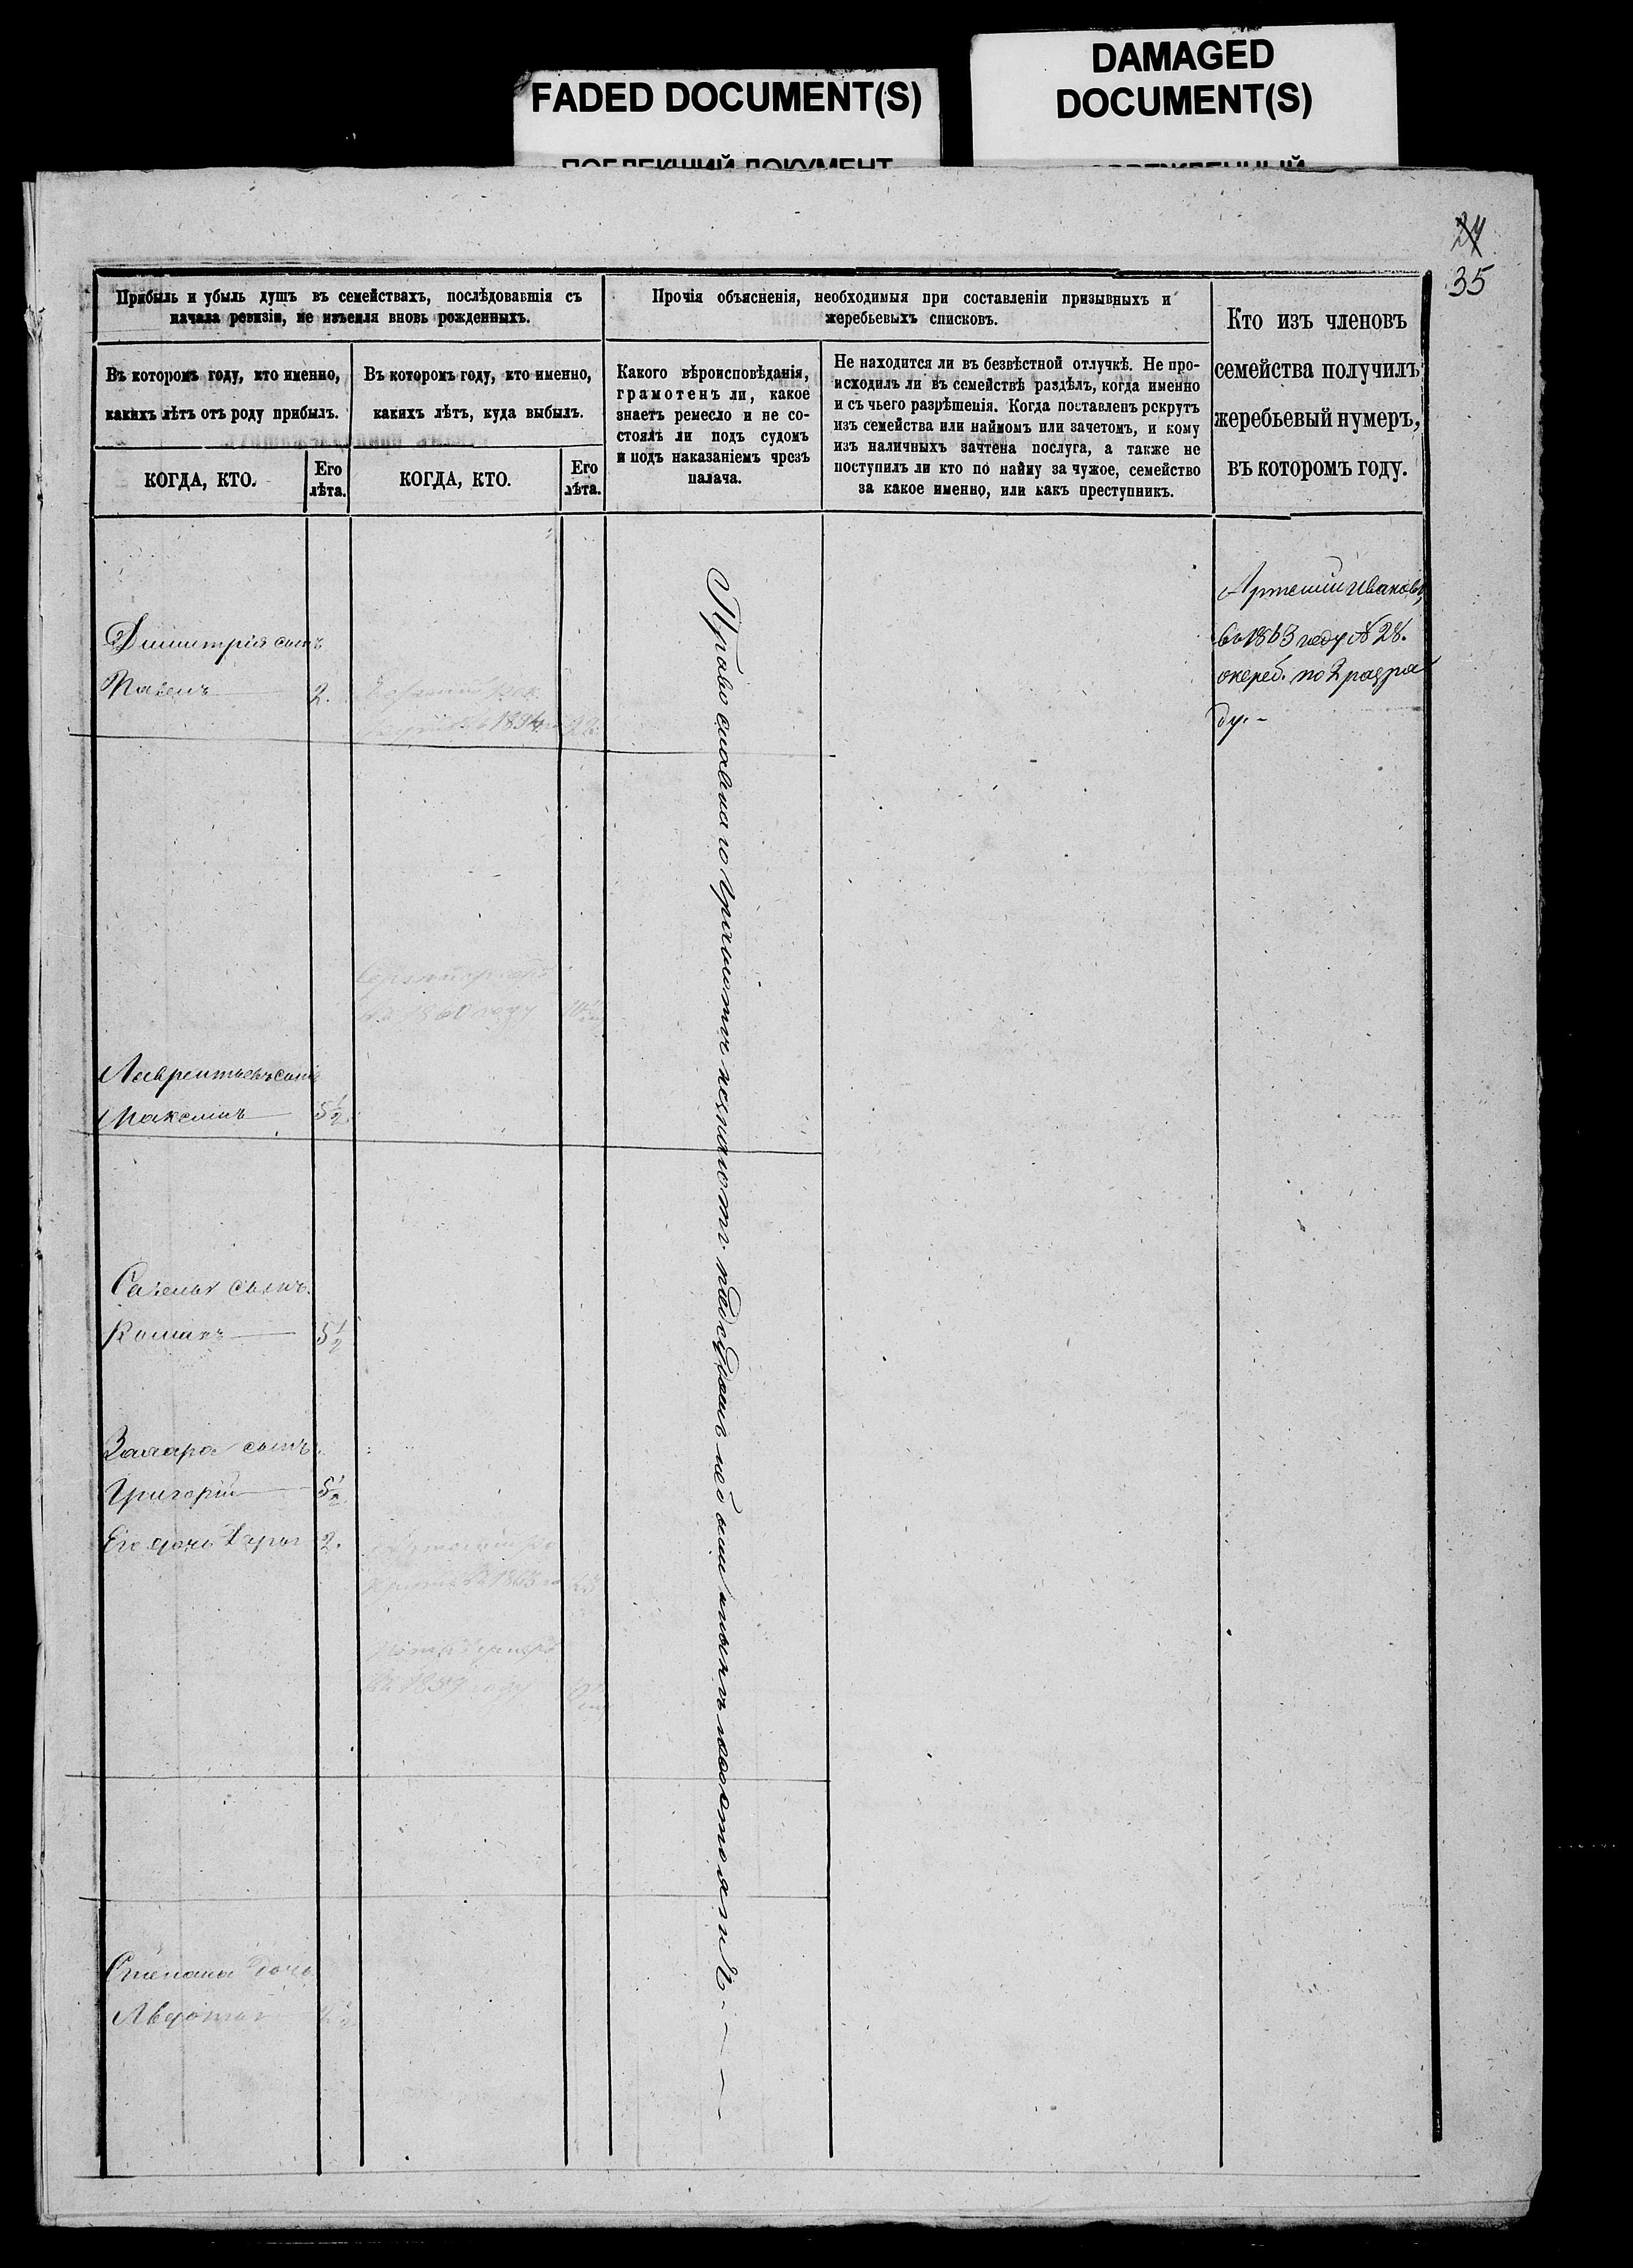 FADED DOCUMENT(S)
DAMAGED
DOCUMENT(S)
24
35
Прибыль и убыль душъ въ семействахъ, послѣдовавшія съ
начала ревизіи, не изъемля вновь рожденныхъ.
Въ которомъ году, кто именно,
какихъ лѣтъ отъ роду прибылъ.
КОГДА, КТО.
Его
лѣта.
Въ которомъ году, кто именно,
какихъ лѣтъ, куда выбылъ.
КОГДА, КТО.
Его
лѣта.
Прочія объясненія, необходимыя при составленіи призывныхъ и
жеребьевыхъ списковъ.
Какого вѣроисповѣданія,
грамотенъ ли, какое
знаетъ ремесло и не со-
стоялъ ли подъ судомъ
и подъ наказаніемъ чрезъ
палача.
Не находится ли въ безвѣстной отлучкѣ. Не про-
исходилъ ли въ семействѣ раздѣлъ, когда именно
и съ чьего разрѣшенія. Когда поставленъ рекрутъ
изъ семейства или наймомъ или зачетомъ, и кому
изъ наличныхъ зачтена послуга, а также не
поступилъ ли кто по найму за чужое, семейство
за какое именно, или какъ преступникъ.
Кто изъ членовъ
семейства получилъ
жеребьевый нумеръ,
въ которомъ году.
Димитрія сынъ
2.
1854
1860 году
Лаврентьевъ сынъ
Максимъ 5½
Савелья сынъ
Романъ 5½
Захара сынъ
Григорій 5½
Его дочь Дарья 2.
въ 1863
въ 1857 году
Степана дочь
Авдотья
Православнаго Грамоты незнаютъ подсудомъ не были и подъ наказаніемъ несостояли
Артемій Ивановъ,
въ 1863 году № 28.
жереб. по 2 разря
ду. –